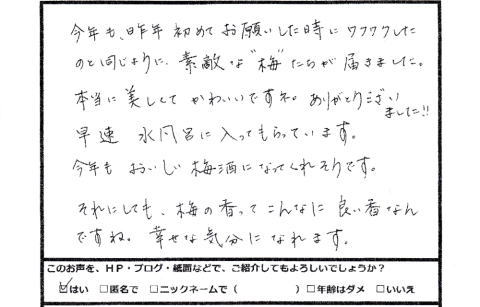 今年も、昨年 初めて お願いした時に ワクワクした
のと同じように、素敵な"梅"たちが届きました。
本当に美しくて かわいいですネ。ありがとうござい
ました!!
早速 水風呂に入ってもらっています。
今年も おいしい 梅酒になってくれそうです。
それにしても、梅の香って こんなに 良い香なん
ですね。幸せな気分に なれます。
このお声を、HP・ブログ・紙面などで、ご紹介してもよろしいでしょうか?
☑はい □匿名で □ニックネームで( )□年齢はダメ □いいえ